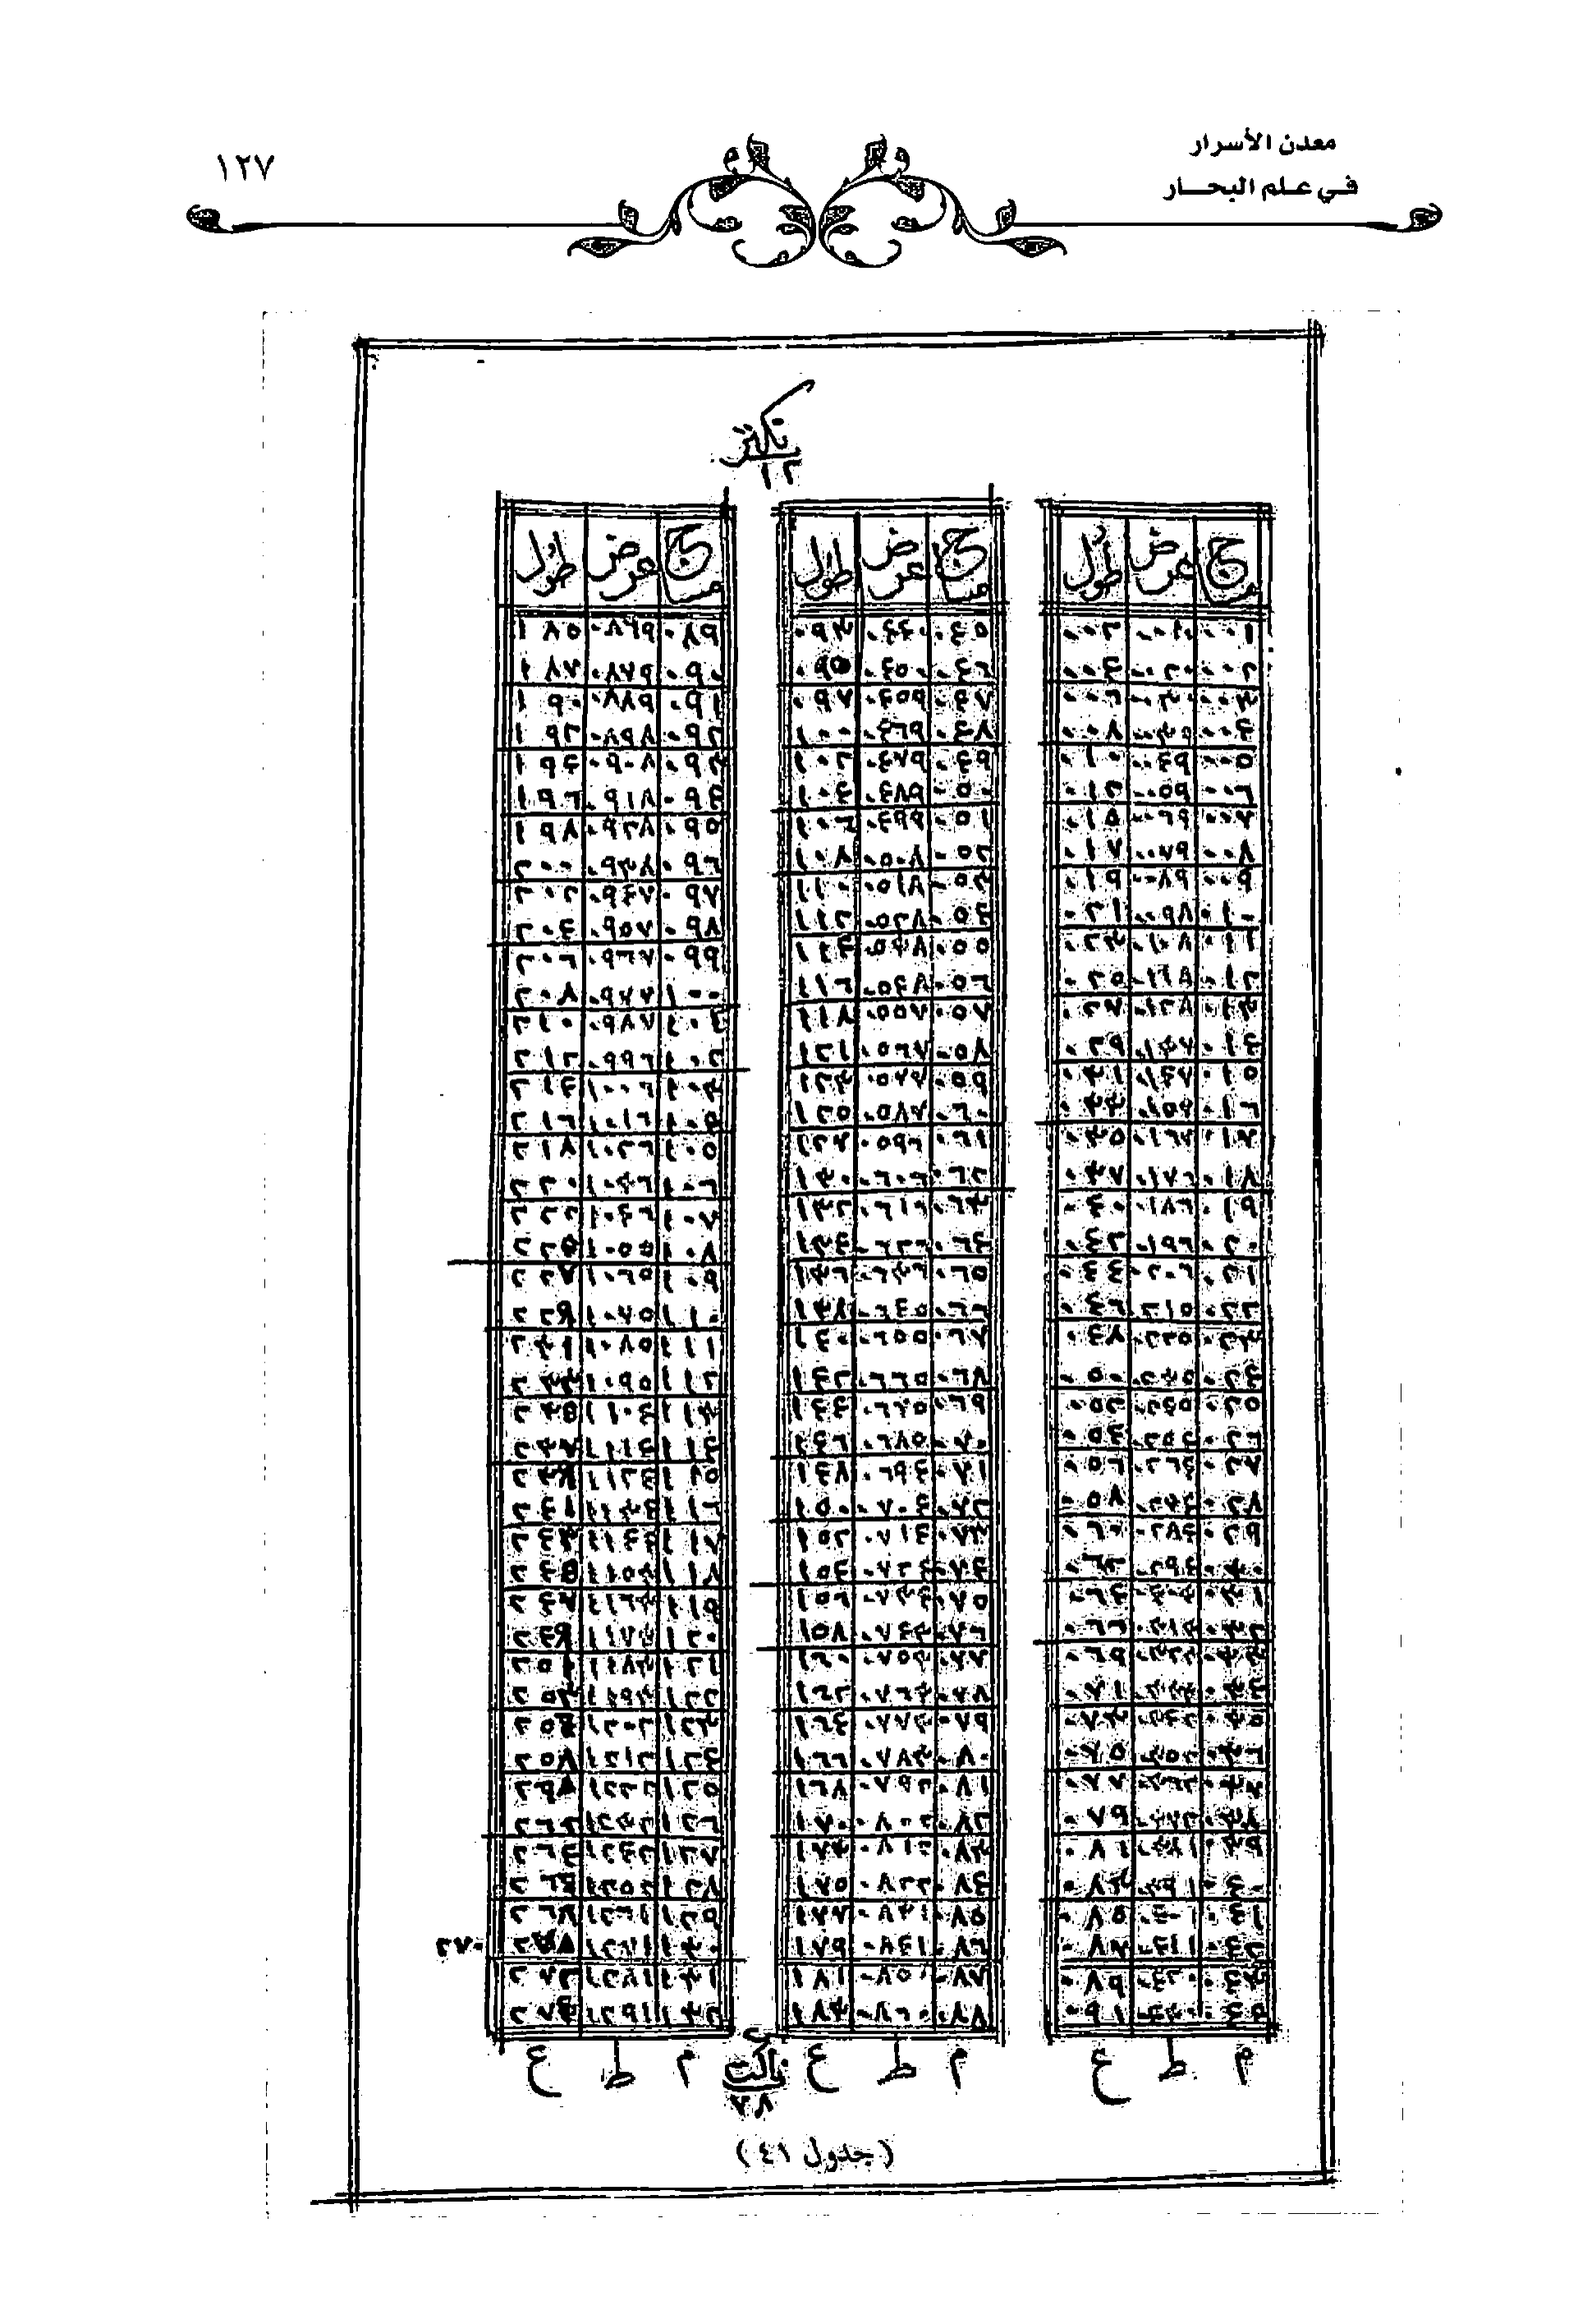 معدن الأسرار
في علم البحار
١٢٧
١٢
مساج عرض طول
٠٠١ ٠٠١٠ ٠٠٢
٠٠٢ ٠٠٢٠ ٠٠٤
٠٠٣ ٠٠٣٠ ٠٠٦
٠٠٤ ٠٠٣٩ ٠٠٨
٠٠٥ ٠٠٤٩ ٠١٠
٠٠٦ ٠٠٥٩ ٠١٢
٠٠٧ ٠٠٦٩ ٠١٥
٠٠٨ ٠٠٧٩ ٠١٧
٠٠٩ ٠٠٨٩ ٠١٩
٠١٠ ٠٠٩٨ ٠٢١
٠١١ ٠١٠٨ ٠٢٣
٠١٢ ٠١١٨ ٠٢٥
٠١٣ ٠١٢٨ ٠٢٧
٠١٤ ٠١٣٧ ٠٢٩
٠١٥ ٠١٤٧ ٠٣١
٠١٦ ٠١٥٦ ٠٣٣
٠١٧ ٠١٦٧ ٠٣٥
٠١٨ ٠١٧٦ ٠٣٧
٠١٩ ٠١٨٦ ٠٤٠
٠٢٠ ٠١٩٦ ٠٤٢
٠٢١ ٠٢٠٦ ٠٤٤
٠٢٢ ٠٢١٥ ٠٤٦
٠٢٣ ٠٢٢٥ ٠٤٨
٠٢٤ ٠٢٣٥ ٠٥٠
٠٢٥ ٠٢٤٥ ٠٥٢
٠٢٦ ٠٥٤
٠٢٧ ٠٢٦٤ ٠٥٦
٠٢٨ ٠٢٧٤ ٠٥٨
٠٢٩ ٠٢٨٤ ٠٦٠
٠٣٠ ٠٢٩٤ ٠٦٢
٠٣١ ٠٣٠٤ ٠٦٤
٠٣٢ ٠٣١٣ ٠٦٦
٠٣٣ ٠٣٢٣ ٠٦٩
٠٣٤ ٠٣٣٣ ٠٧١
٠٣٥ ٠٣٤٢ ٠٧٣
٠٣٦ ٠٣٥٢ ٠٧٥
٠٣٧ ٠٣٦٢ ٠٧٧
٠٣٨ ٠٣٧٢ ٠٧٩
٠٣٩ ٠٣٨١ ٠٨١
٠٤٠ ٠٣٩١ ٠٨٣
٠٤١ ٠٤٠١ ٠٨٥
٠٤٢ ٠٤١١ ٠٨٧
٠٤٣ ٠٤٢٠ ٠٨٩
٠٤٤ ٠٤٣٠ ٠٩١
م ط ع
مساج عرض طول
٠٤٥ ٠٤٤٠ ٠٩٣
٠٤٦ ٠٤٥٠ ٠٩٥
٠٤٧ ٠٤٥٩ ٠٩٧
٠٤٨ ٠٤٦٩ ١٠٠
٠٤٩ ٠٤٧٩ ١٠٢
٠٥٠ ٠٤٨٩ ١٠٤
٠٥١ ٠٤٩٩ ١٠٦
٠٥٢ ٠٥٠٨ ١٠٨
٠٥٣ ٠٥١٨ ١١٠
٠٥٤ ٠٥٢٨ ١١٢
٠٥٥ ٠٥٣٨ ١١٤
٠٥٦ ٠٥٤٨ ١١٦
٠٥٧ ٠٥٥٧ ١١٨
٠٥٨ ٠٥٦٧ ١٢١
٠٥٩ ٠٥٧٧ ١٢٣
٠٦٠ ٠٥٨٧ ١٢٥
٠٦١ ٠٥٩٦ ١٢٧
٠٦٢ ٠٦٠٦ ١٣٠
٠٦٣ ٠٦١٦ ١٣٢
٠٦٤ ٠٦٢٦ ١٣٤
٠٦٥ ٠٦٣٦ ١٣٦
٠٦٦ ٠٦٤٥ ١٣٨
٠٦٧ ٠٦٥٥ ١٤٠
٠٦٨ ٠٦٦٥ ١٤٢
٠٦٩ ٠٦٧٥ ١٤٤
٠٧٠ ٠٦٨٥ ١٤٦
٠٧١ ٠٦٩٤ ١٤٨
٠٧٢ ٠٧٠٤ ١٥٠
٠٧٣ ٠٧١٤ ١٥٢
٠٧٤ ٠٧٢٤ ١٥٤
٠٧٥ ٠٧٣٤ ١٥٦
٠٧٦ ٠٧٤٣ ١٥٨
٠٧٧ ٠٧٥٣ ١٦٠
٠٧٨ ٠٧٦٣ ١٦٢
٠٧٩ ٠٧٧٣ ١٦٤
٠٨٠ ٠٧٨٣ ١٦٦
٠٨١ ٠٧٩٢ ١٦٨
٠٨٢ ٠٨٠٢ ١٧٠
٠٨٣ ٠٨١٢ ١٧٣
٠٨٤ ٠٨٢٢ ١٧٥
٠٨٥ ٠٨٣١ ١٧٧
٠٨٦ ٠٨٤١ ١٧٩
٠٨٧ ٠٨٥١ ١٨١
٠٨٨ ٠٨٦٠ ١٨٣
م ط ع
مساج عرض طول
٠٨٩ ٠٨٦٩ ١٨٥
٠٩٠ ٠٨٧٩ ١٨٧
٠٩١ ٠٨٨٩ ١٩٠
٠٩٢ ٠٨٩٨ ١٩٢
٠٩٣ ٠٩٠٨ ١٩٤
٠٩٤ ٠٩١٨ ١٩٦
٠٩٥ ٠٩٢٨ ١٩٨
٠٩٦ ٠٩٣٨ ٢٠٠
٠٩٧ ٠٩٤٧ ٢٠٢
٠٩٨ ٠٩٥٧ ٢٠٤
٠٩٩ ٠٩٦٧ ٢٠٦
١٠٠ ٠٩٧٧ ٢٠٨
١٠١ ٠٩٨٧ ٢١٠
١٠٢ ٠٩٩٦ ٢١٢
١٠٣ ١٠٠٦ ٢١٤
١٠٤ ١٠١٦ ٢١٦
١٠٥ ١٠٢٦ ٢١٨
١٠٦ ١٠٣٦ ٢٢٠
١٠٧ ١٠٤٦ ٢٢٢
١٠٨ ١٠٥٥ ٢٢٥
١٠٩ ١٠٦٥ ٢٢٧
١١٠ ١٠٧٥ ٢٢٩
١١١ ١٠٨٥ ٢٣١
١١٢ ١٠٩٥ ٢٣٣
١١٣ ١١٠٤ ٢٣٥
١١٤ ١١١٤ ٢٣٧
١١٥ ١١٢٤ ٢٣٩
١١٦ ١١٣٤ ٢٤١
١١٧ ١١٤٤ ٢٤٣
١١٨ ١١٥٣ ٢٤٥
١١٩ ١١٦٣ ٢٤٧
١٢٠ ١١٧٣ ٢٤٩
١٢١ ١١٨٣ ٢٥١
١٢٢ ١١٩٣ ٢٥٣
١٢٣ ١٢٠٢
١٢٤ ١٢١٢ ٢٥٨
١٢٥ ١٢٢٢
١٢٦ ١٢٣٢ ٢٦٢
١٢٧ ١٢٤٢ ٢٦٤
١٢٨ ١٢٥٢
١٢٩ ١٢٦١ ٢٦٨
١٣٠ ١٢٧١ ٢٧٠
١٣١ ١٢٨١ ٢٧٢
١٣٢ ١٢٩١ ٢٧٤
م ط ع
٧٨
(جدول ٤١)